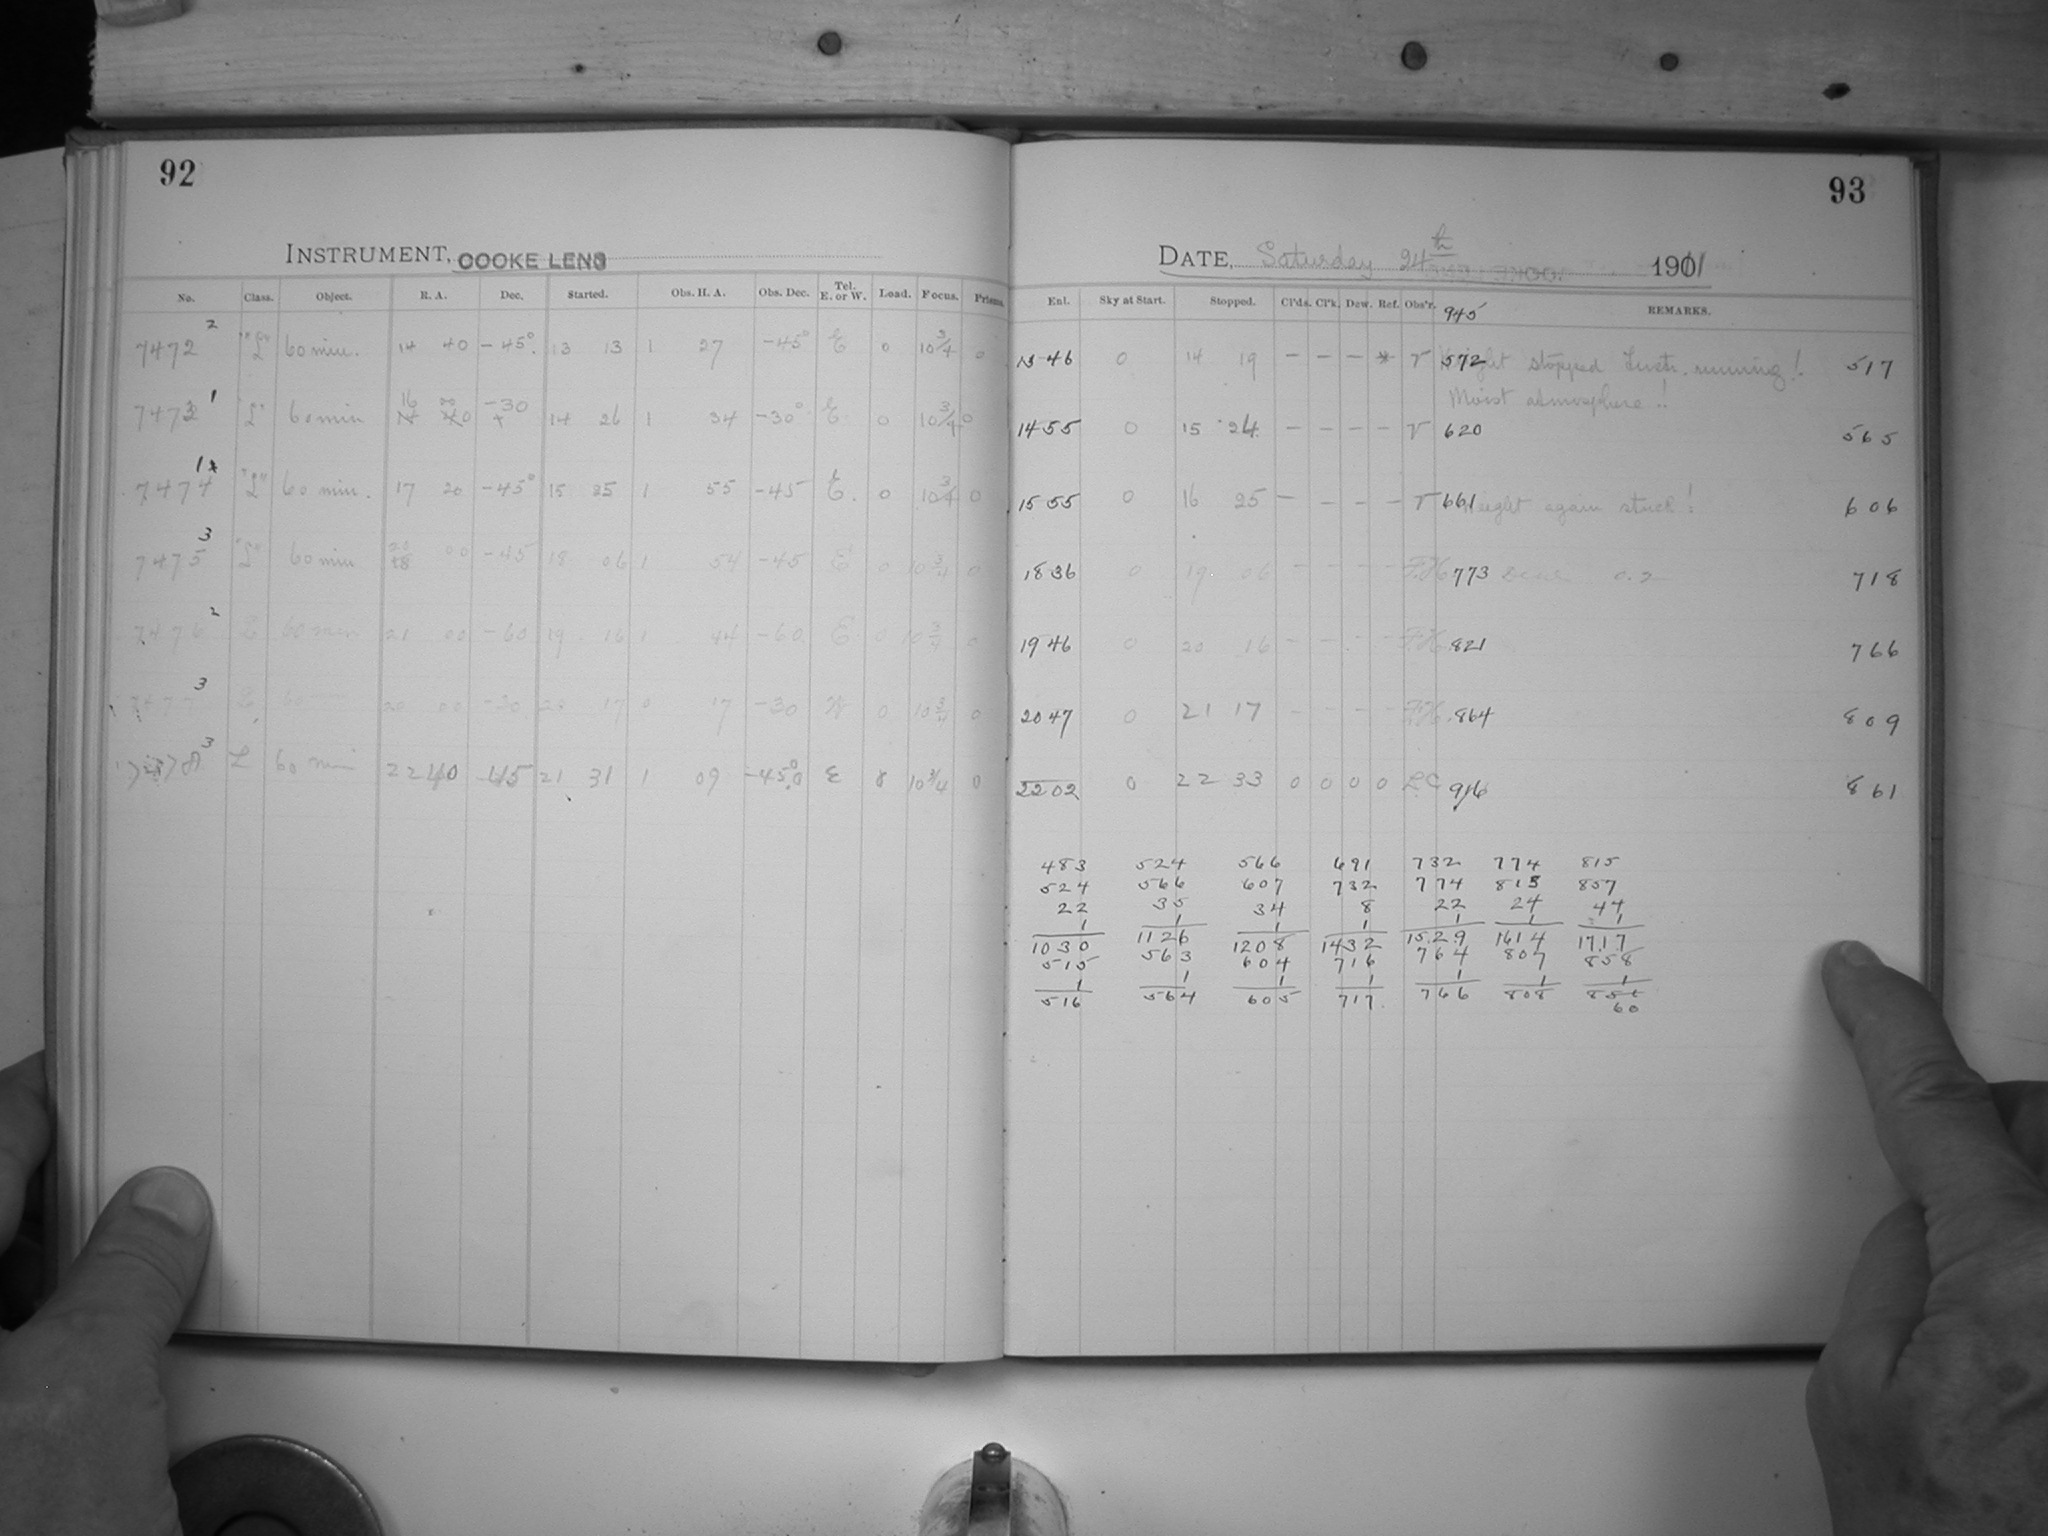 92
INSTRUMENT, COOKE LENS
No. Class. Object. R. A. Dec. Started. Obs. H. A. Obs. Dec. Tel. E. or W. Load. Focus. Prisms.
7472 2 "L" 60 min. 14 40 -45° 13 13 1 27 -45° E 0 10 3/4 0
7473 1 "L" 60 min 16 00 -30 14 26 1 34 -30° E 0 10 3/4 0
7474 1* "L" 60 min. 17 20 -45° 15 25 1 55 -45 E. 0 10 3/4 0
7475 3 "L" 60 min 20 18 00 -45 18 06 1 54 -45 E 0 10 3/4 0
7476 2 L 60 min 21 00 -60 19 16 1 44 -60 E 0 10 3/4 0
7477 3 L 60 20 00 -30 20 17 0 17 -30 W 0 10 3/4 0
7478 3 L 60 min 22 40 -45 21 31 1 09 -45° E 0 10 3/4 0
93
DATE, Saturday 24th 1901
Enl. Sky at Start. Stopped. Cl'ds. Cl'k. Dew. Ref. Obs'r. REMARKS.
945
13 46 0 14 19 – – – * V 572 Weight stopped running! 517
Moist atmosphere!!
1455 0 15 24 – – – – V 620 565
15 55 0 16 25 – – – – V 661 Weight again stuck! 606
1836 0 19 06 – – – – F.H. 773 0.2 718
1946 0 20 16 – – – – F.H. 821 766
2047 0 21 17 – – – – F.H. 864 809
2202 0 22 33 0 0 0 0 L.C 916 861
483 524 566 691 732 774 815
524 566 607 732 774 815 857
22 35 34 8 22 24 44
1 1 1 1 1 1 1
1030 1126 1208 1432 1529 1614 1717
515 563 604 716 764 807 858
1 1 1 1 1 1 1
516 564 605 717. 766 808
60